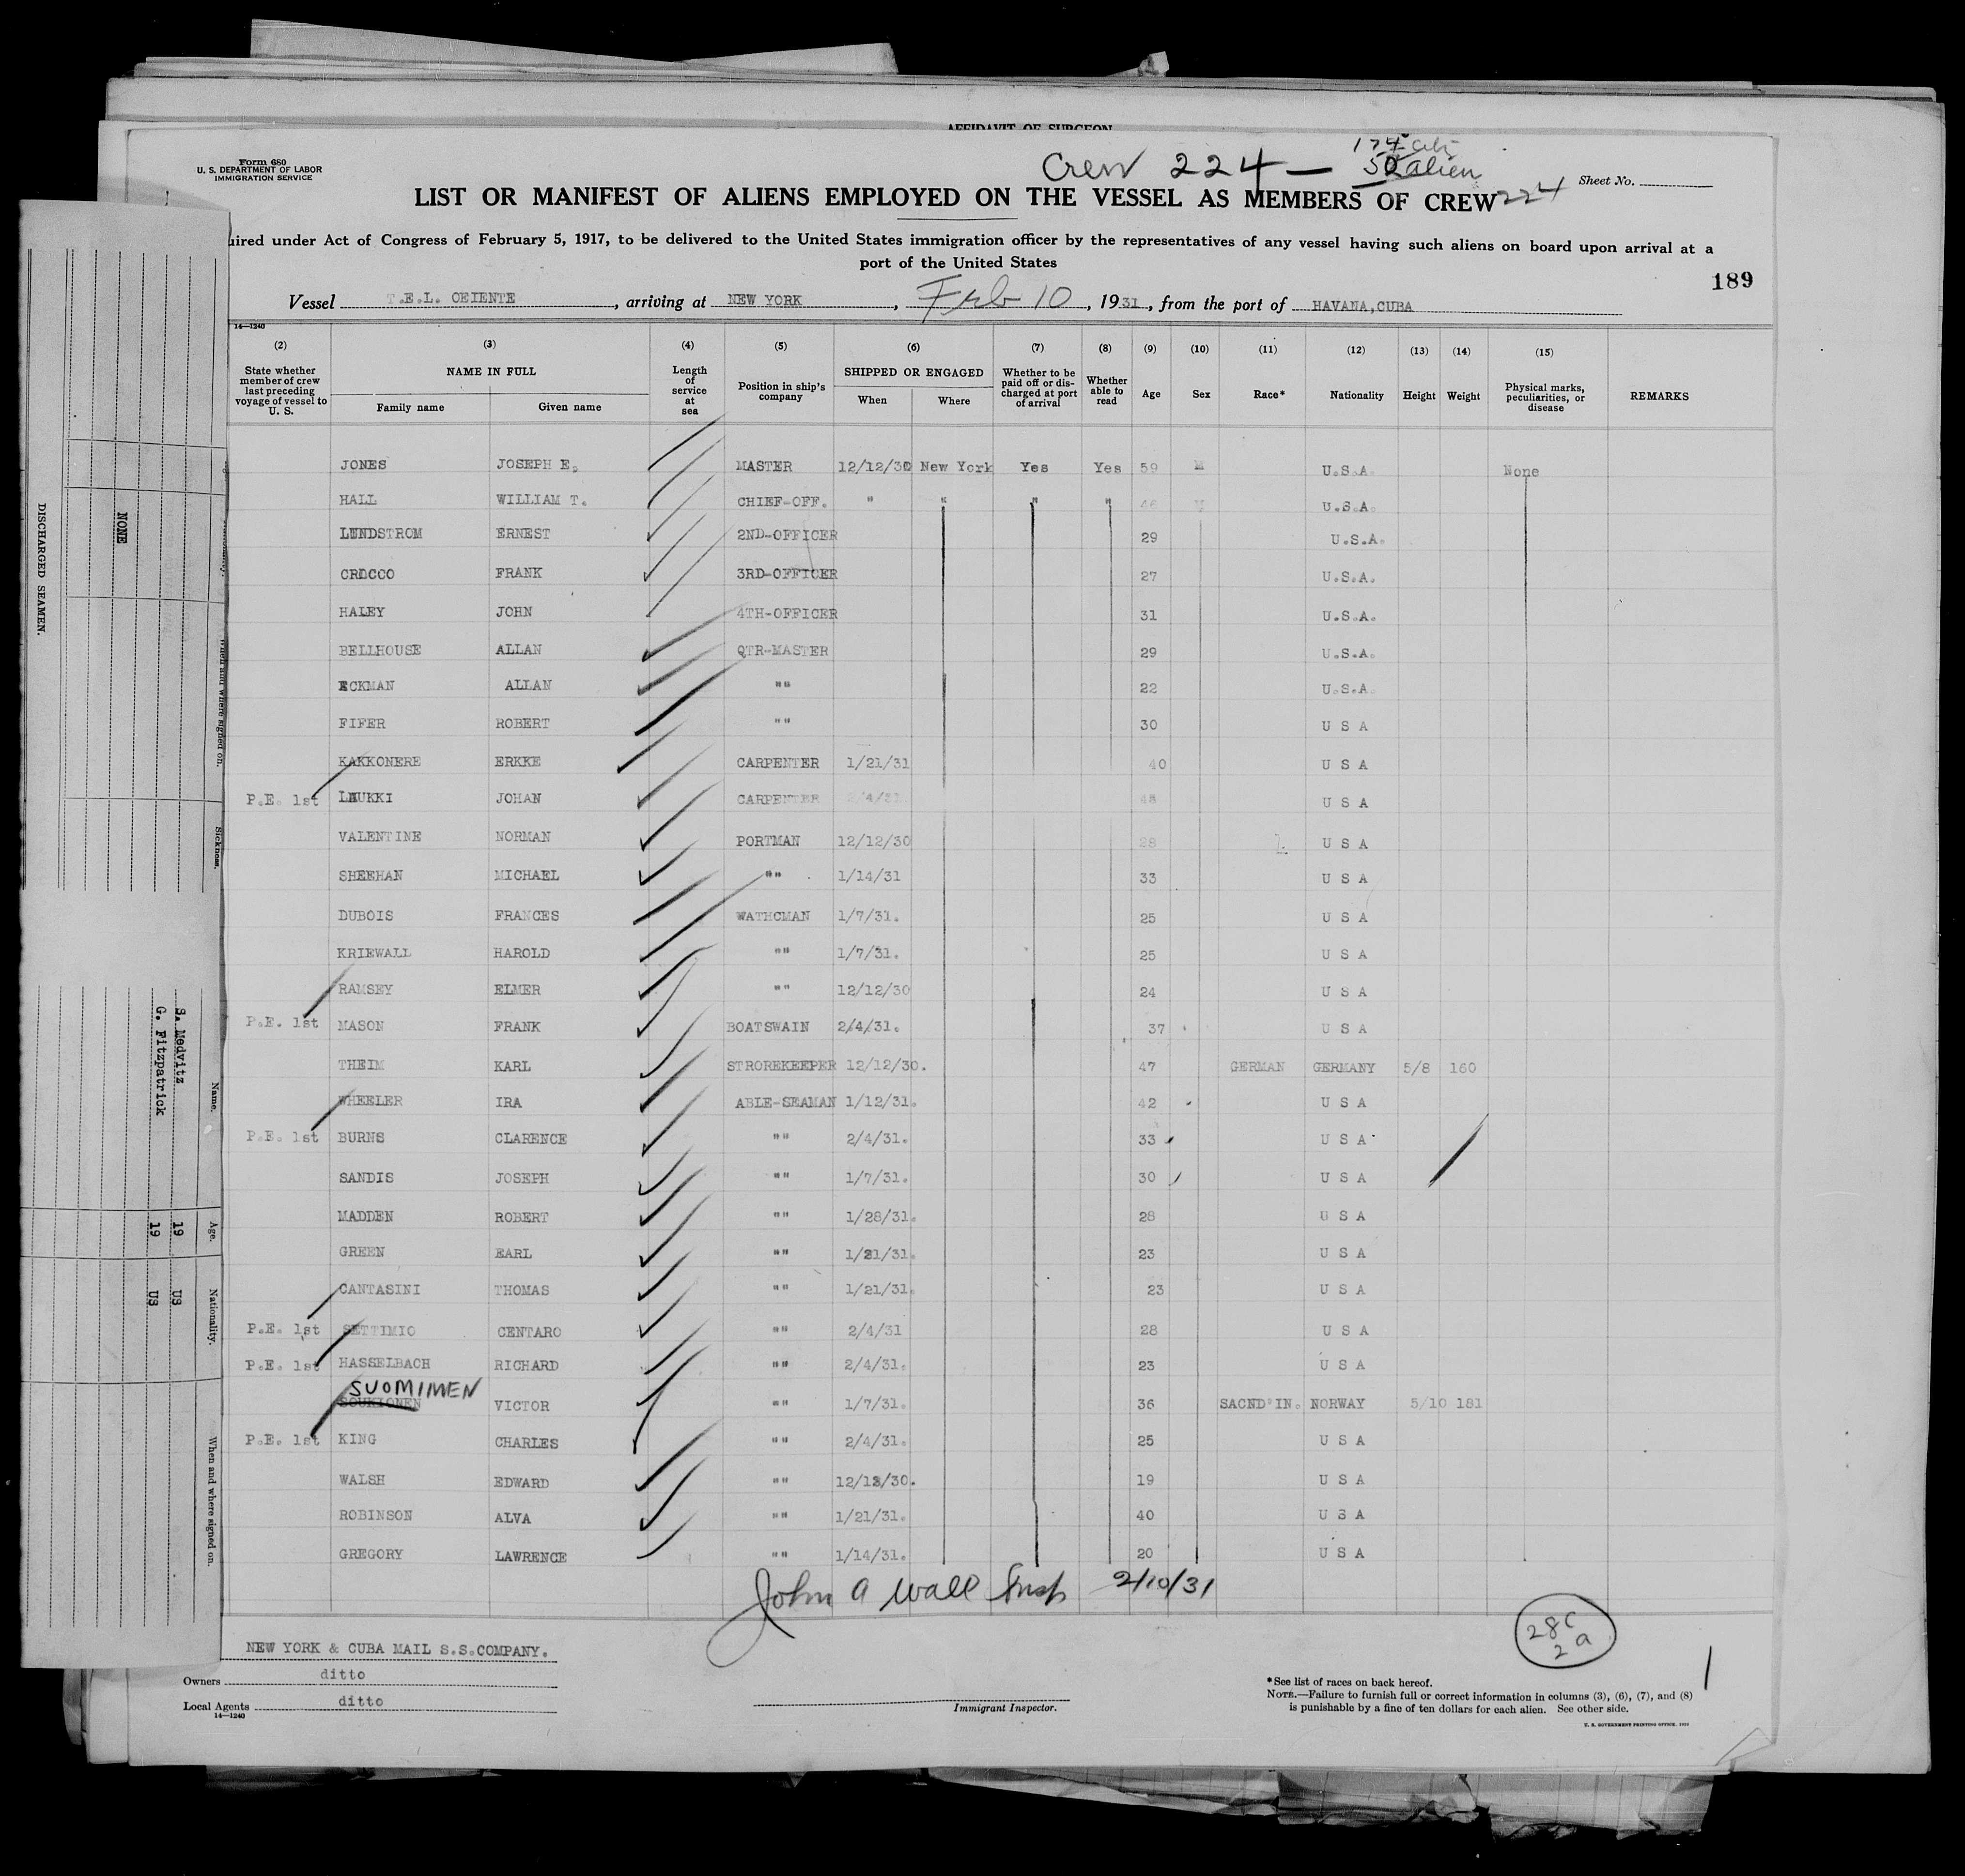 AFFIDAVIT OF SURGEON
Form 680
U. S. DEPARTMENT OF LABOR
IMMIGRATION SERVICE
Crew 224 — 174
50 alien
224
Sheet No.
LIST OR MANIFEST OF ALIENS EMPLOYED ON THE VESSEL AS MEMBERS OF CREW
uired under Act of Congress of February 5, 1917, to be delivered to the United States immigration officer by the representatives of any vessel having such aliens on board upon arrival at a
port of the United States
189
Vessel T.E.L. OEIENTE, arriving at NEW YORK, Feb 10, 1931, from the port of HAVANA,CUBA
14—1240
(2) (3) (4) (5) (6) (7) (8) (9) (10) (11) (12) (13) (14) (15)
State whether member of crew last preceding voyage of vessel to U. S. NAME IN FULL Family name Given name Length of service at sea Position in ship's company SHIPPED OR ENGAGED When Where Whether to be paid off or discharged at port of arrival Whether able to read Age Sex Race* Nationality Height Weight Physical marks, peculiarities, or disease REMARKS
JONES JOSEPH E. MASTER 12/12/30 New York Yes Yes 59 M U.S.A. None
HALL WILLIAM T. CHIEF-OFF. " " " " 46 M U.S.A.
LUNDSTROM ERNEST 2ND-OFFICER 29 U.S.A.
CROCCO FRANK 3RD-OFFICER 27 U.S.A.
HALEY JOHN 4TH-OFFICER 31 U.S.A.
BELLHOUSE ALLAN QTR-MASTER 29 U.S.A.
ECKMAN ALLAN "" 22 U.S.A.
FIFER ROBERT "" 30 U S A
KAKKONERE ERKKE CARPENTER 1/21/31 40 U S A
P.E. 1st LAUKKI JOHAN CARPENTER 2/4/31 48 U S A
VALENTINE NORMAN PORTMAN 12/12/30 28 U S A
SHEEHAN MICHAEL "" 1/14/31 33 U S A
DUBOIS FRANCES WATHCMAN 1/7/31. 25 U S A
KRIEWALL HAROLD "" 1/7/31. 25 U S A
RAMSEY ELMER "" 12/12/30 24 U S A
P.E. 1st MASON FRANK BOATSWAIN 2/4/31. 37 U S A
THEIM KARL STROREKEEPER 12/12/30. 47 GERMAN GERMANY 5/8 160
WHEELER IRA ABLE-SEAMAN 1/12/31. 42 U S A
P.E. 1st BURNS CLARENCE "" 2/4/31. 33 U S A
SANDIS JOSEPH "" 1/7/31. 30 U S A
MADDEN ROBERT "" 1/28/31. 28 U S A
GREEN EARL "" 1/21/31. 23 U S A
CANTASINI THOMAS "" 1/21/31. 23 U S A
P.E. 1st SETTIMIO CENTARO "" 2/4/31 28 U S A
P.E. 1st HASSELBACH RICHARD "" 2/4/31. 23 U S A
SUOMIMEN
SOUKIOMEN VICTOR "" 1/7/31. 36 SACND'IN. NORWAY 5/10 181
P.E. 1st KING CHARLES "" 2/4/31. 25 U S A
WALSH EDWARD "" 12/12/30. 19 U S A
ROBINSON ALVA "" 1/21/31. 40 U S A
GREGORY LAWRENCE "" 1/14/31. 20 U S A
John A Wall Insp 2/10/31
28 C
2 a
NEW YORK & CUBA MAIL S.S.COMPANY.
Owners ditto
Local Agents ditto
14—1240
Immigrant Inspector.
*See list of races on back hereof.
NOTE.—Failure to furnish full or correct information in columns (3), (6), (7), and (8)
is punishable by a fine of ten dollars for each alien. See other side.
U. S. GOVERNMENT PRINTING OFFICE
DISCHARGED SEAMEN.
NONE
When and where signed on.
Sickness.
Name. Age. Nationality. When and where signed on.
S. Medvitz 19 US
G. Fitzpatrick 19 US